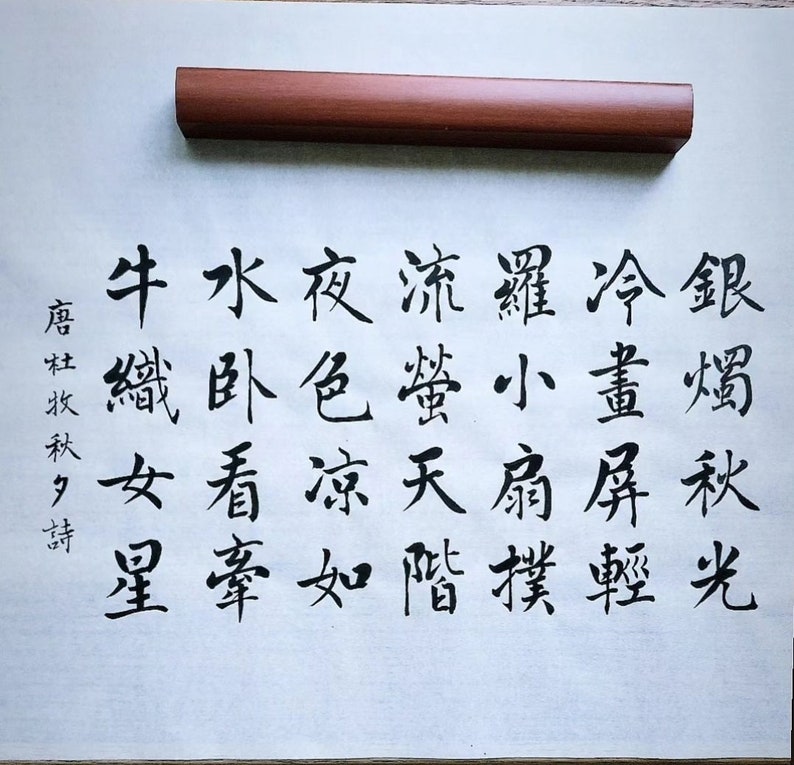 銀燭秋光
冷畫屏輕
羅小扇撲
流螢天階
夜色涼如
水臥看牽
牛織女星
唐杜牧秋夕詩